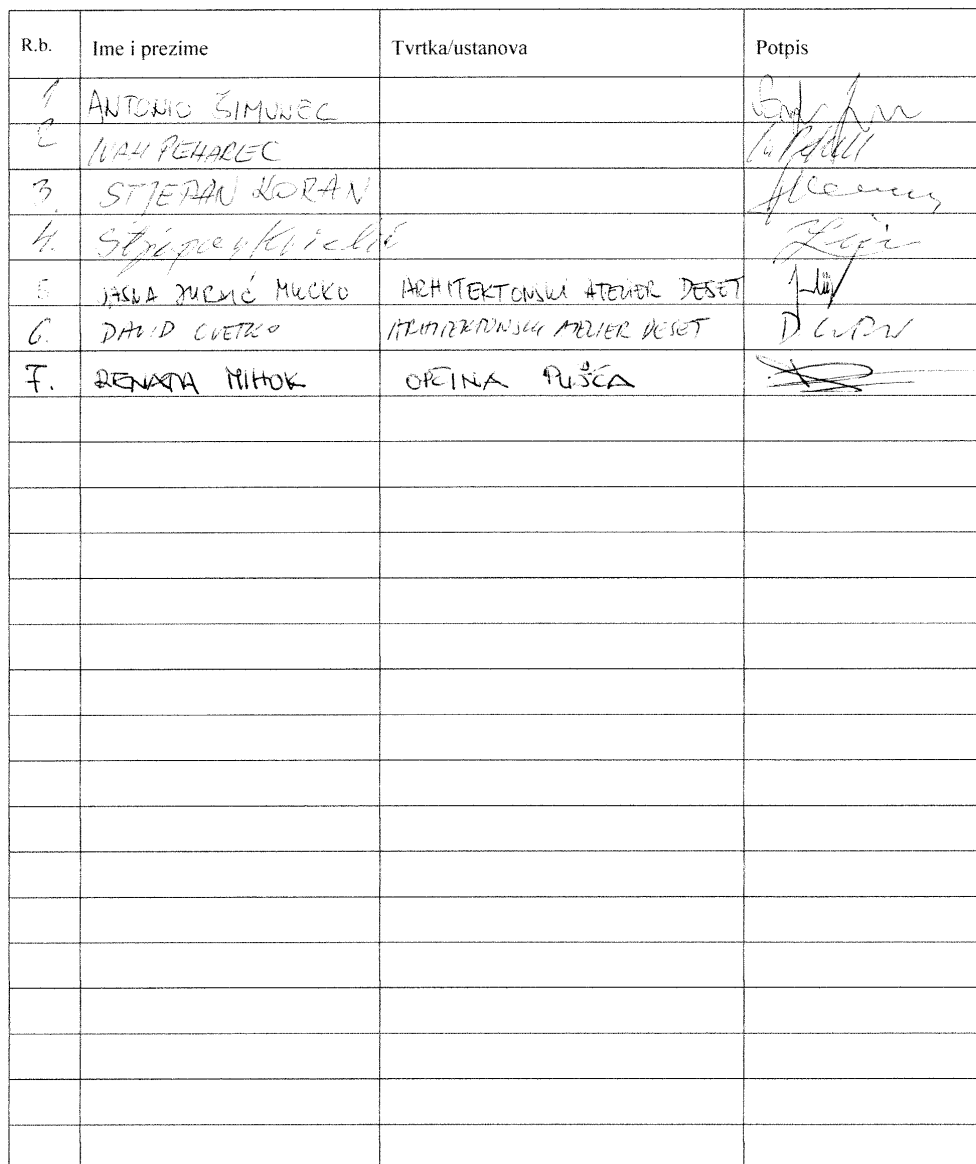 R.b. Ime i prezime Tvrtka/ustanova Potpis
1 ANTONIO ŠIMUNEC
2 IVAN PEHAREC
3. STJEPAN KORAN
4. Stjepan
5 JASNA MUCKO ARHITEKTONSKI ATELIER DESET
6. DAVID CVETKO ARHITEKTONSKI ATELIER DESET
7. RENATA MIHOK OPĆINA PUŠĆA